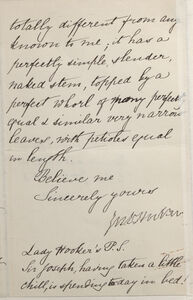 totally different from any
known to me; it has a
perfectly simple, slender,
naked stem, topped by a
perfect whorl of many perfect
equal & similar very narrow
leaves, with petioles equal
in length.
Believe me
Sincerely yours
Jos D Hooker
Lady Hooker's P.S.
Sir Joseph, having taken a little
chill, is spending today in bed,